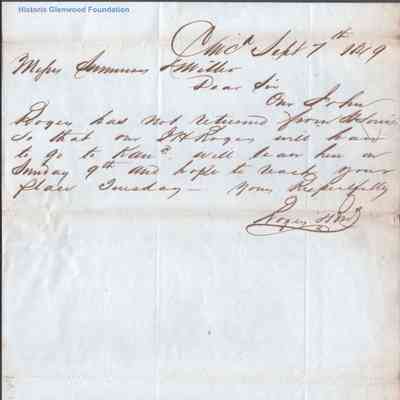 Historic Glenwood Foundation
Sept 7th 1849
Messrs Summers & Miller
Dear Sir
Our John
Rogers has not returned from St Louis
So that our J H Rogers will have
to go to will be on him on
Sunday 9th and hope to reach your
place Tuesday — Yours Respectfully
Rogers